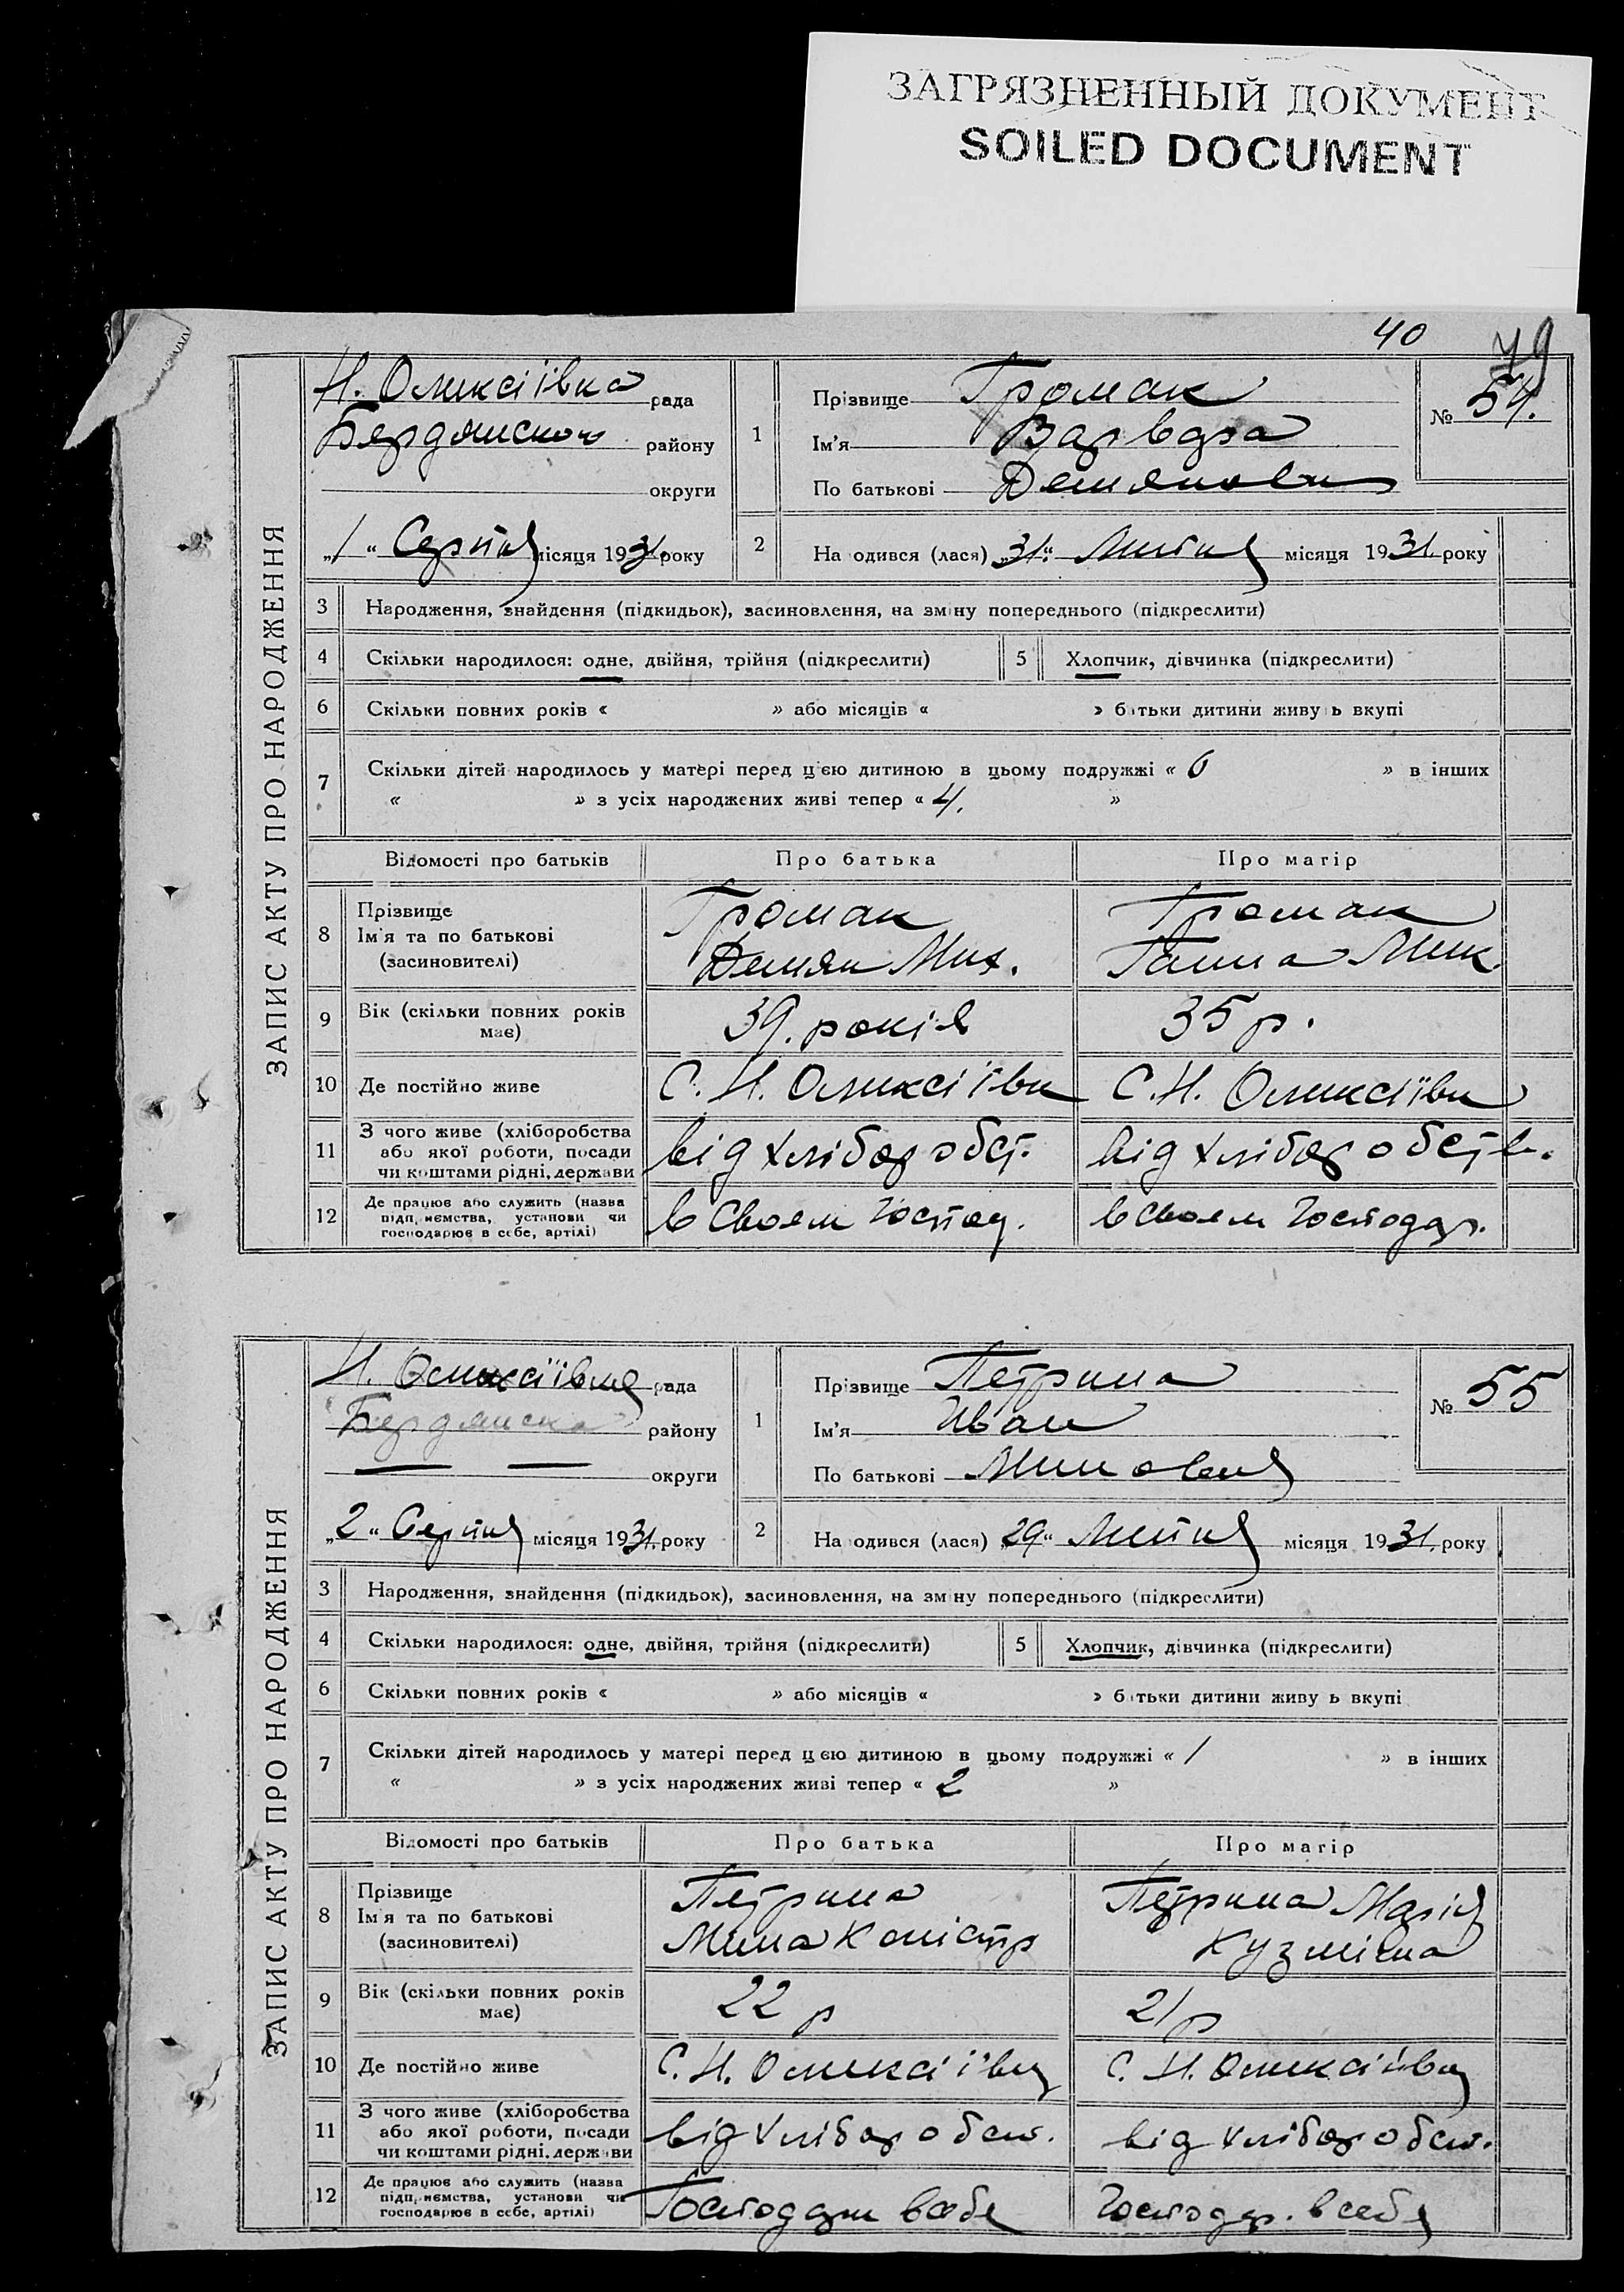 ЗАГРЯЗНЕННЫЙ ДОКУМЕНТ
SOILED DOCUMENT
40
79
ЗАПИС АКТУ ПРО НАРОДЖЕННЯ
Н. Олексіївка рада
Бердянского району
округи
„1“ Серпня місяця 1931 року
1
Прізвище Громак
Ім'я Варвара
По батькові
№ 54.
2
На одився (лася) „31“ Липня місяця 1931 року
3 Народження, знайдення (підкидьок), засиновлення, на зміну попереднього (підкреслити)
4 Скільки народилося: одне, двійня, трійня (підкреслити) 5 Хлопчик, дівчинка (підкреслити)
6 Скільки повних років « » або місяців « » батьки дитини живу ь вкупі
7 Скільки дітей народилось у матері перед цією дитиною в цьому подружжі « 6 » в інших
« » з усіх народжених живі тепер « 4. »
Відомості про батьків Про батька Про матір
8 Прізвище
Ім'я та по батькові
(засиновителі)
Громак
Демян Мих.
Громак
Ганна Мик.
9 Вік (скільки повних років має) 39. років 35 р.
10 Де постійно живе С. Н. Олексіївк С. Н. Олексіївк
11 З чого живе (хліборобства
або якої роботи, посади
чи коштами рідні, держави
від хліборобст. від хліборобств.
12 Де працює або служить (назва
підприємства, установи чи
господарює в себе, артілі)
в своем Господ. в своем Господар.
ЗАПИС АКТУ ПРО НАРОДЖЕННЯ
Н. Олексіївка рада
Бердянска району
— — округи
„2“ Серпня місяця 1931. року
1
Прізвище Петрина
Ім'я Иван
По батькові
№ 55
2
На одився (лася) „29“ Липня місяця 1931. року
3 Народження, знайдення (підкидьок), засиновлення, на зміну попереднього (підкреслити)
4 Скільки народилося: одне, двійня, трійня (підкреслити) 5 Хлопчик, дівчинка (підкреслити)
6 Скільки повних років « » або місяців « » батьки дитини живу ь вкупі
7 Скільки дітей народилось у матері перед цією дитиною в цьому подружжі « 1 » в інших
« » з усіх народжених живі тепер « 2 »
Відомості про батьків Про батька Про матір
8 Прізвище
Ім'я та по батькові
(засиновителі)
Петрина
Мина
Петрина Марія
Кузмівна
9 Вік (скільки повних років має) 22 р 21 р
10 Де постійно живе С. Н. Олексіївк С. Н. Олексіївк
11 З чого живе (хліборобства
або якої роботи, посади
чи коштами рідні, держави
від хліборобст. від хліборобст.
12 Де працює або служить (назва
підприємства, установи чи
господарює в себе, артілі)
Господар в себе Господар. в себе